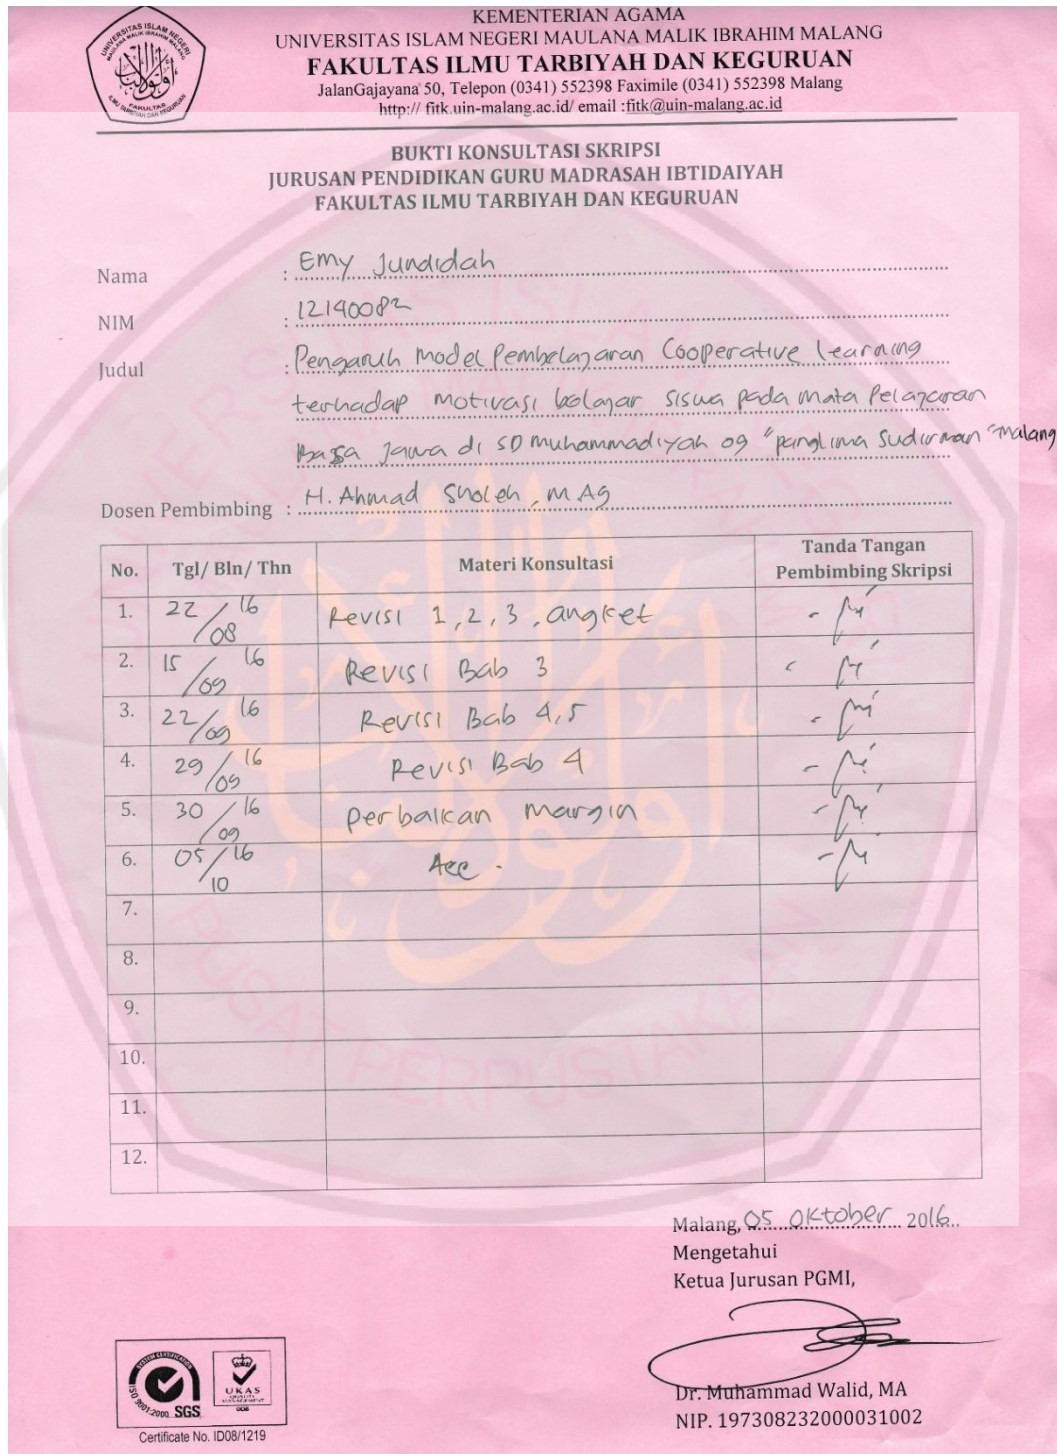 KEMENTERIAN AGAMA
UNIVERSITAS ISLAM NEGERI MAULANA MALIK IBRAHIM MALANG
FAKULTAS ILMU TARBIYAH DAN KEGURUAN
JalanGajayana 50, Telepon (0341) 552398 Faximile (0341) 552398 Malang
http:// fitk.uin-malang.ac.id/ email :fitk@uin-malang.ac.id
BUKTI KONSULTASI SKRIPSI
JURUSAN PENDIDIKAN GURU MADRASAH IBTIDAIYAH
FAKULTAS ILMU TARBIYAH DAN KEGURUAN
Nama : Emy Jundidah
NIM : 12140082
Judul : Pengaruh Model Pembelajaran Cooperative Learning
terhadap motivasi belajar siswa pada mata Pelajaran
Jawa di SD Muhammadiyah 09 "panglima Sudirman" Malang
Dosen Pembimbing : H. Ahmad Sholeh, M.Ag
No. Tgl/ Bln/ Thn Materi Konsultasi Tanda Tangan Pembimbing Skripsi
1. 22/08 16 Revisi 1, 2, 3, angket
2. 15/09 16 Revisi Bab 3
3. 22/09 16 Revisi Bab 4,5
4. 29/09 16 Revisi Bab 4
5. 30/09 16 perbaikan margin
6. 05/10 16 Acc .
7.
8.
9.
10.
11.
12.
Malang, 05 Oktober 2016
Mengetahui
Ketua Jurusan PGMI,
Dr. Muhammad Walid, MA
NIP. 197308232000031002
SYSTEM CERTIFICATION
ISO 9001:2000 SGS
UKAS
QUALITY
MANAGEMENT
005
Certificate No. ID08/1219
PUSAT PERPUSTAKAAN